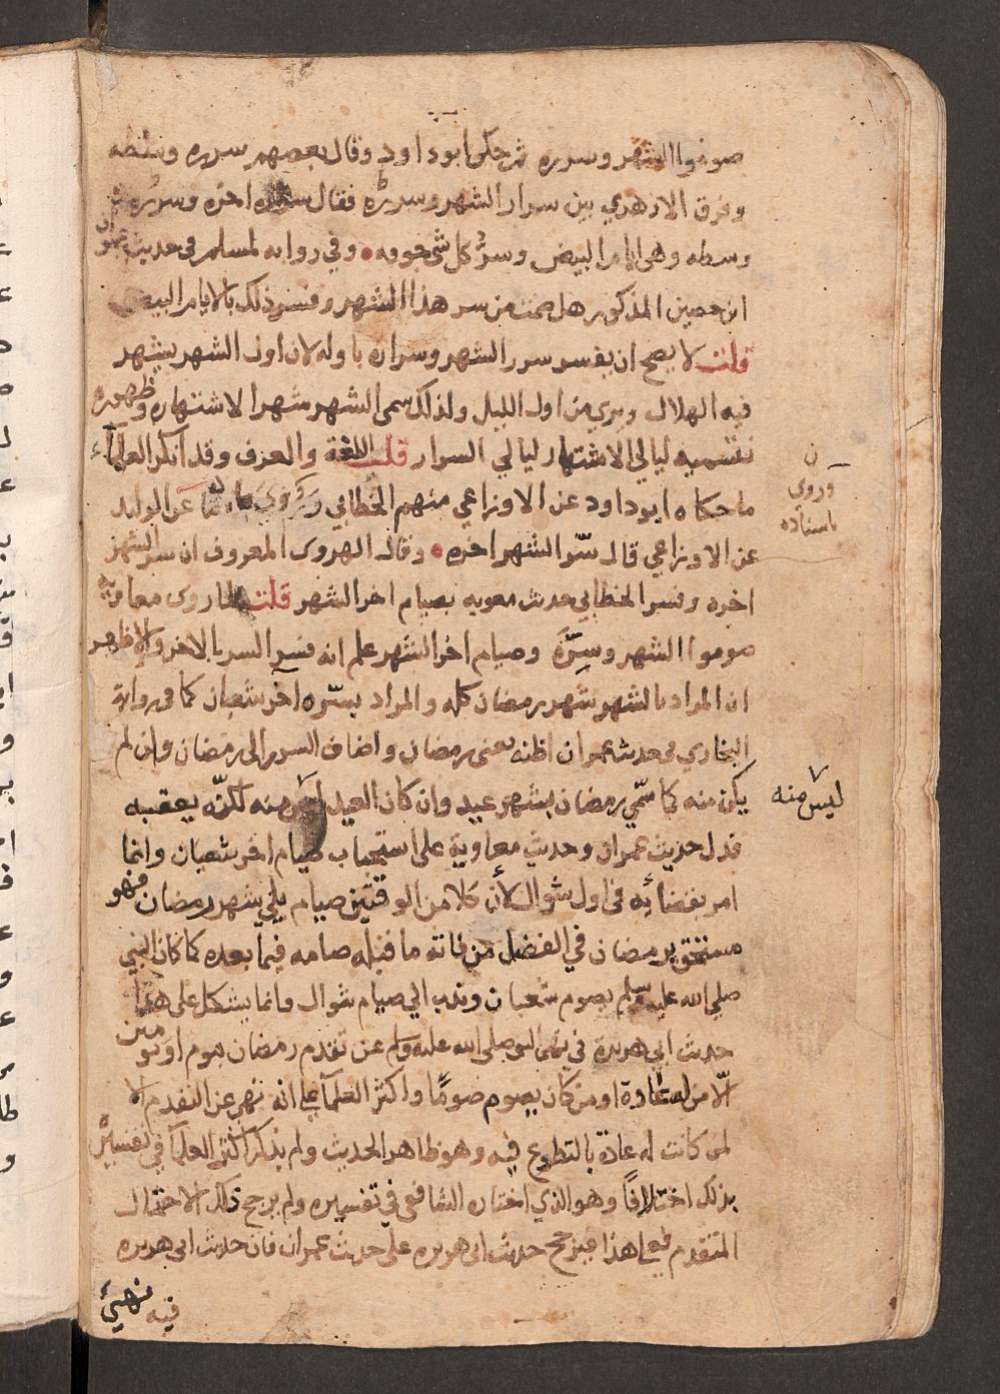 صوموا الشهر وسرره ثم حكى ابو داود وقال بعضهم سرره وسطه
وفرق الازهري بين سرار الشهر وسرره فقال سراره اخره وسرره
وسطه وهى ايام البيض وسر كل شي جوفه وفي روايه لمسلم فى حديث عمران
ابن حصين المذكور هل صمت من سر هذا الشهر وفسر ذلك بالايام البيض
قلت لا يصح ان يفسر سرر الشهر وسراره باوله لان اول الشهر يشهر
فيه الهلال ويري من اول الليل ولذلك سمى الشهر شهرا لاشتهاره وظهوره
فتسميه ليالي الاشتهار ليالي السرار قلب اللغة والعرف وقد انكر العلمآء
ما حكاه ابو داود عن الاوزاعي منهم الخطابي عن الوليد
وروى
باسناده
عن الاوزاعي قال سرّ الشهر اخره وقال الهروى المعروف ان سر الشهر
اخره وفسر الخطابي حديث معويه بصيام اخر الشهر قلت لما روى معاويه
صوموا الشهر وسرّه وصيام اخر الشهر علم انه فسر السر بالاخر والاظهر
ان المراد بالشهر شهر رمضان كله والمراد بسرّه آخر شعبان كما فى رواية
البخاري فى حديث عمران اظنه يعنى رمضان واضاف السرر الى رمضان وان لم
يكن منه كما سمّي رمضان بشهر عيد وان كان العيد ليس منه لكنّه يعقبه
ليس منه
فدل حديث عمران وحديث معاوية على استحباب صيام اخر شعبان وانما
امر بقضائه فى اول شوال لأن كلا من الوقتين صيام يلي شهر رمضان فهو
ملتحق برمضان في الفضل فمن فاته ما قبله صامه فيما بعده كما كان النبي
صلى الله عليه وسلم يصوم شعبان وندب الي صيام شوال وانما يشكل على هذا
حديث ابى هريرة في نهى النبى صلى الله عليه وسلم عن تقدم رمضان بيوم او يومين
الّا من له عادة او من كان يصوم صومًا واكثر العلمآ علي انه نهى عن التقدم الا
لمن كانت له عادة بالتطوع فيه وهو ظاهر الحديث ولم يذكر اكثر العلمآ في تفسيره
بذلك اختلافًا وهو الذي اختاره الشافعى في تفسيره ولم يرجح ذلك الاحتمال
المتقدم فعلى هذا فيرجح حديث ابى هريره على حديث عمران فان حديث ابى هريره
فيه نهي